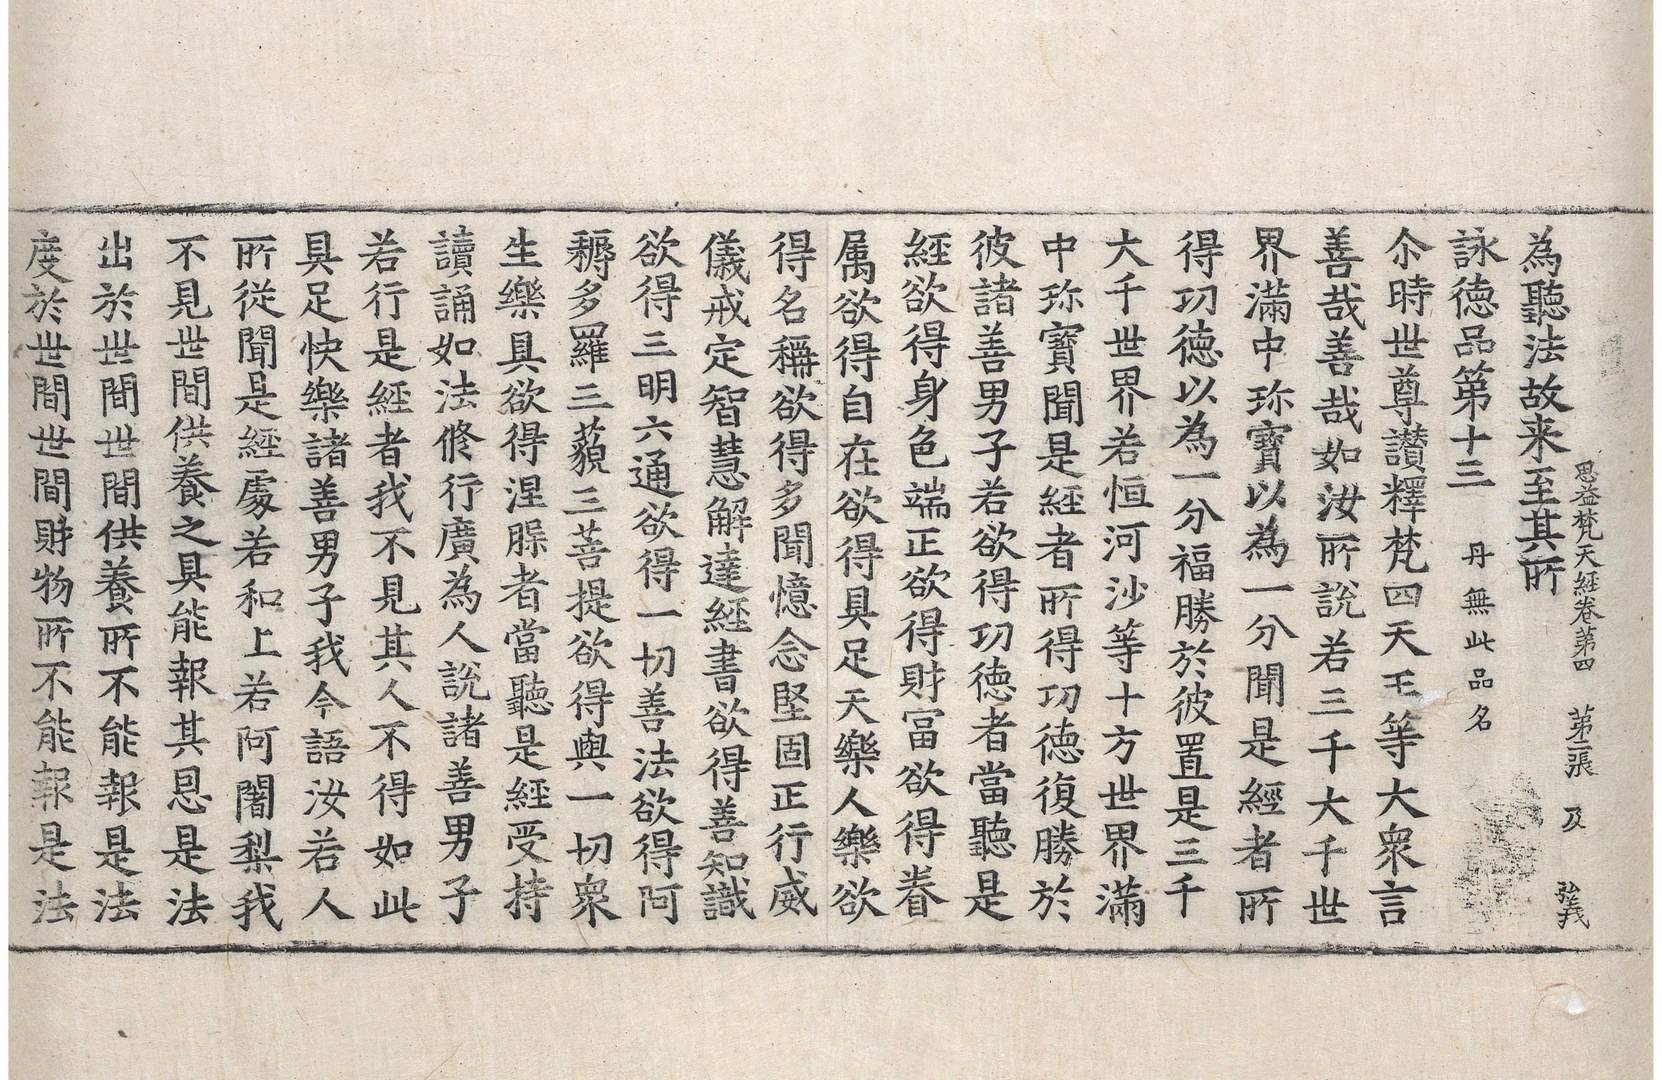 思益梵天經卷第四　第二張　及　弘義
為聽法故来至其所
詠德品第十三　丹無此品名
尒時世尊讃釋梵四天王等大衆言
善哉善哉如汝所說若三千大千世
界滿中珎寶以為一分聞是經者所
得功德以為一分福勝於彼置是三千
大千世界若恒河沙等十方世界滿
中珎寶聞是經者所得功德復勝於
彼諸善男子若欲得功德者當聽是
經欲得身色端正欲得財富欲得眷
属欲得自在欲得具足天樂人樂欲
得名稱欲得多聞憶念堅固正行威
儀戒定智慧解達經書欲得善知識
欲得三明六通欲得一切善法欲得阿
耨多羅三藐三菩提欲得與一切衆
生樂具欲得涅槃者當聽是經受持
讀誦如法脩行廣為人說諸善男子
若行是經者我不見其人不得如此
具足快樂諸善男子我今語汝若人
所從聞是經處若和上若阿闍梨我
不見世間供養之具能報其恩是法
出於世間世間供養所不能報是法
度於世間世間財物所不能報是法